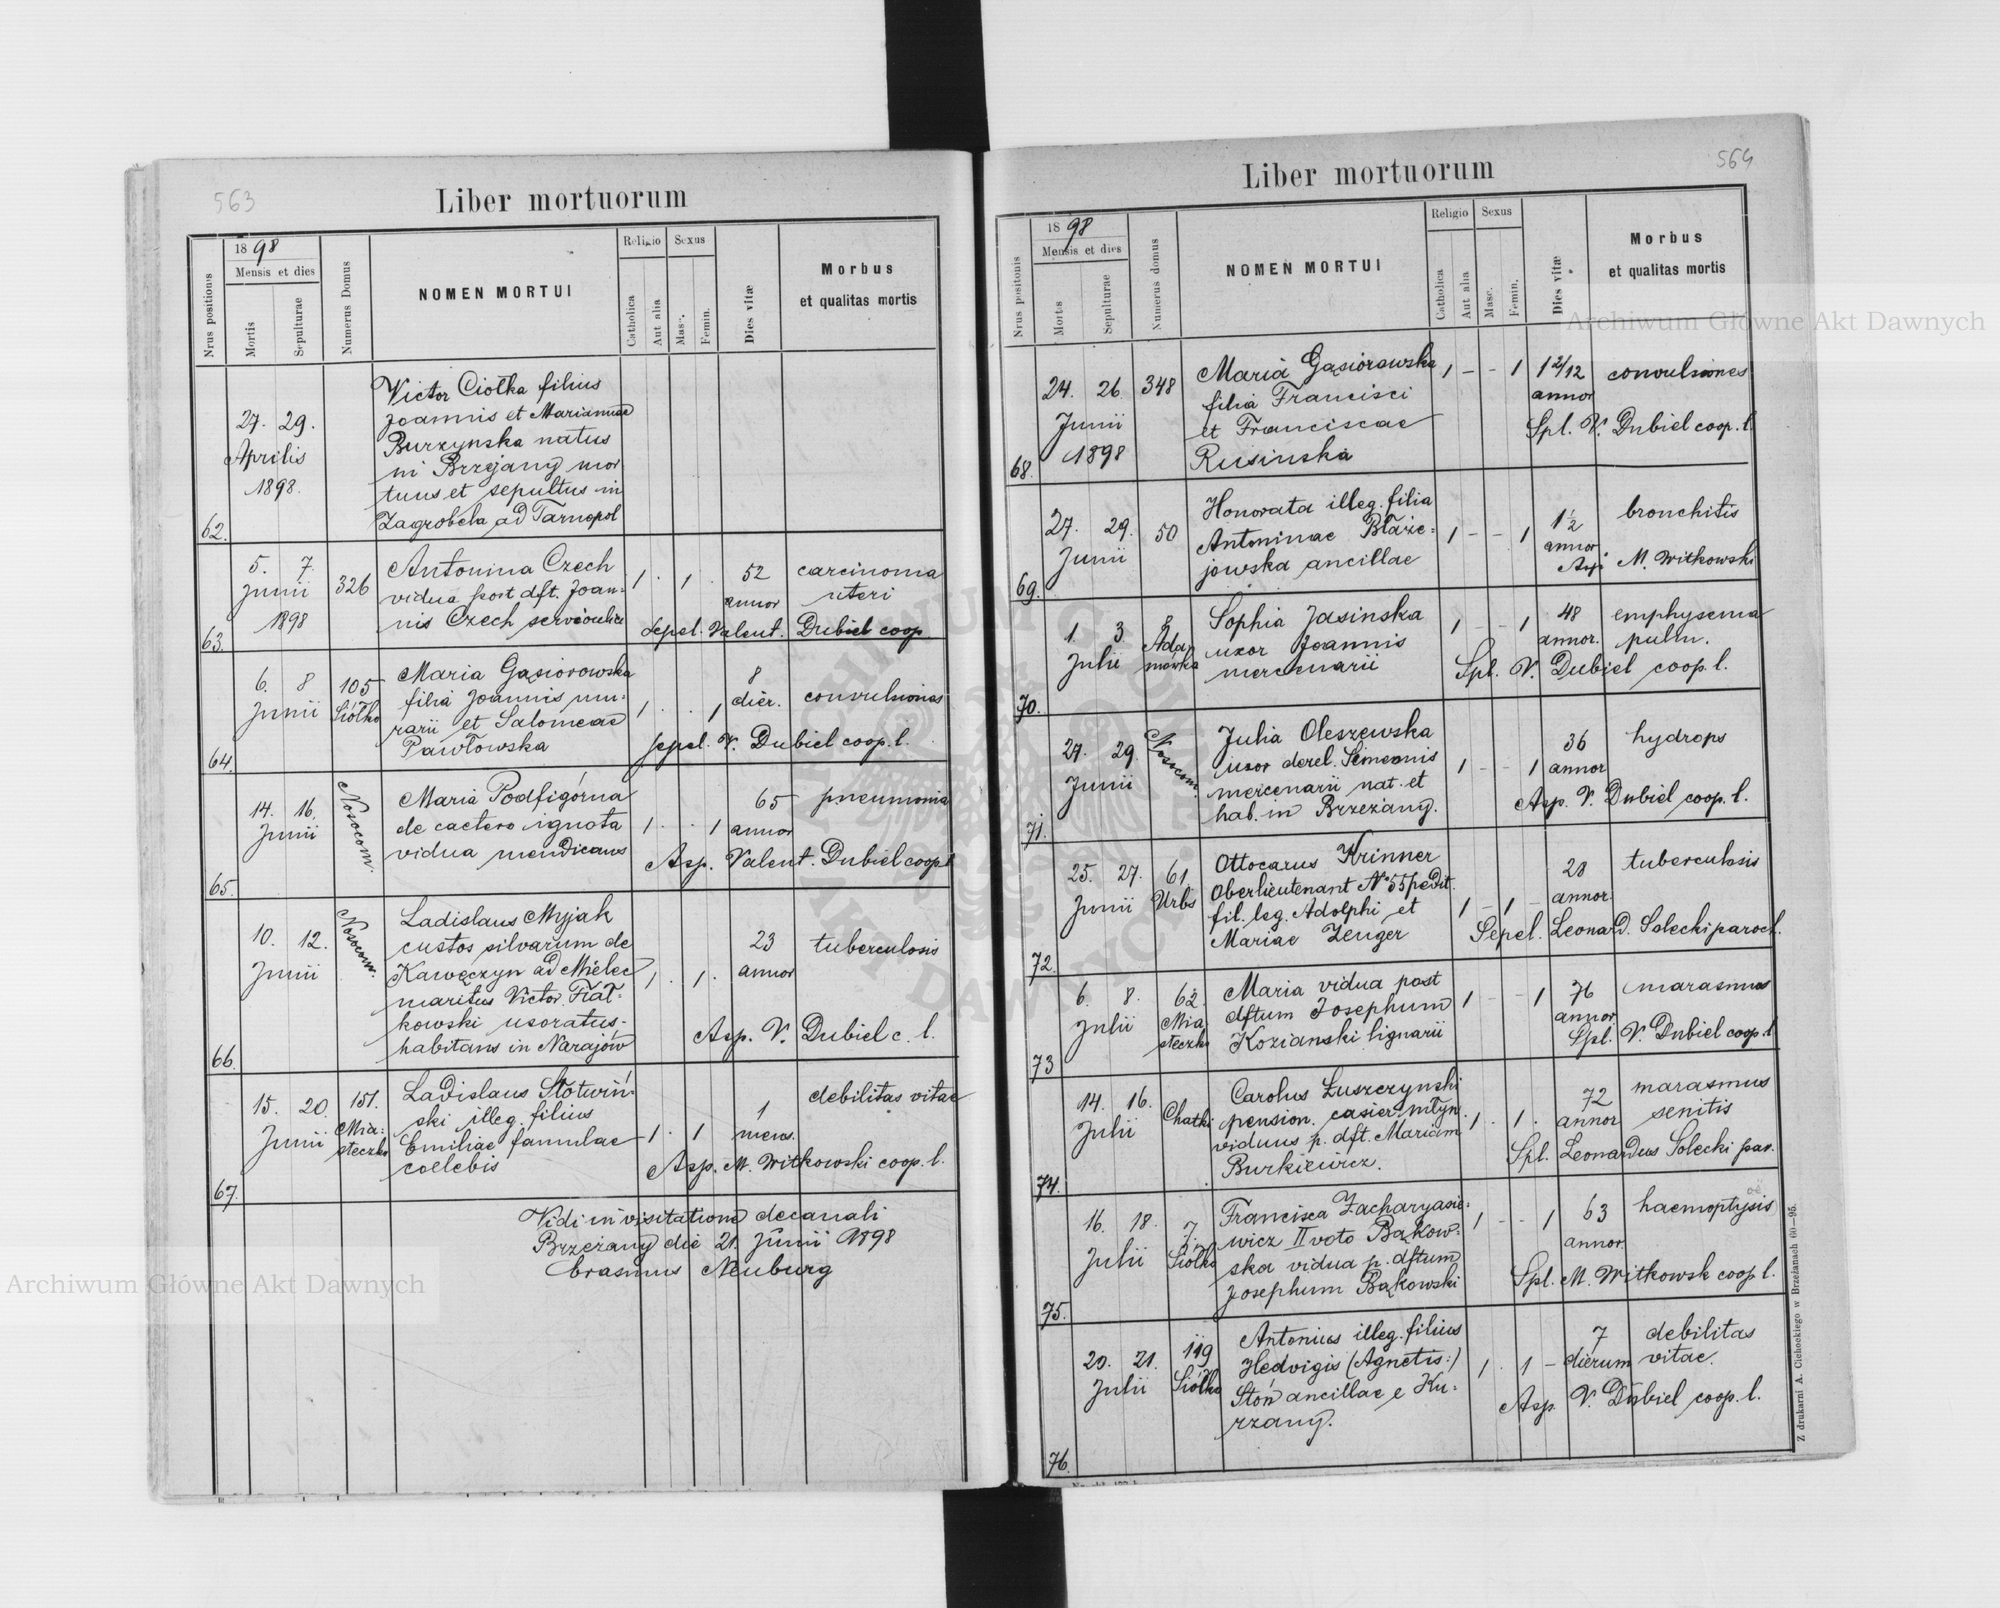 563
Liber mortuorum
Nrus positionis
1898
Mensis et dies
Mortis
Sepulturae
Numerus Domus
NOMEN MORTUI
Religio
Catholica
Aut alia
Sexus
Masc.
Femin.
Dies vitæ
Morbus
et qualitas mortis
62.
27. 29.
Aprilis
1898.
Victor Ciołka filius
Joannis et Mariannae
Burzynska natus
in Brzeżany mor
tuus et sepultus in
Zagrobela ad Tarnopol
63.
5. 7.
Junii
1898
326
Antonina Czech
vidua post dft. Joan-
nis Czech
1 . 1 .
52
annor
carcinoma
uteri
Sepel. Valent. Dubiel coop
64.
6. 8
Junii
105
Siółko
Maria Gąsiorowska
filia Joannis mu-
rarii et Salomeae
Pawłowska
1 . . 1
8
dier.
convulsiones
sepel. V. Dubiel coop. l.
65.
14. 16.
Junii
Nosocom.
Maria Podfigórna
de caetero ignota
vidua mendicans
1 . . 1
65
annor
pneumonia
Asp. Valent. Dubiel coopl
66.
10. 12.
Junii
Nosocom.
Ladislaus Myjak
custos silvarum de
Kawęczyn ad Mielec
maritus Victor. Fiał-
kowski uxoratus-
habitans in Narajów
1 . 1 .
23
annor
tuberculosis
Asp. V. Dubiel c. l.
67.
15. 20.
Junii
151.
Mia-
steczko
Ladislaus Słotwiń-
ski illeg. filius
Emiliae famulae
coelebis
1 . 1
1
mens.
debilitas vitae
Asp. M. Witkowski coop. l.
Vidi in visitatione decanali
Brzeżany die 21. Junii 1898
Erasmus Neuburg
564
Liber mortuorum
Nrus positionis
1898
Mensis et dies
Mortis
Sepulturae
Numerus domus
NOMEN MORTUI
Religio
Catholica
Aut alia
Sexus
Masc.
Femin.
Dies vitæ
Morbus
et qualitas mortis
68.
24. 26.
Junii
1898
348
Maria Gąsiorowska
filia Francisci
et Franciscae
Rusinska
1 - - 1
1 2/12
annor
convulsiones
Spl. V. Dubiel coop. l.
69.
27. 29.
Junii
50
Honorata illeg. filia
Antoninae Błaże-
jowska ancillae
1 - - 1
1 1/2
annor
bronchitis
Asp. M. Witkowski
70.
1. 3.
Julii
8
Ada-
mówka
Sophia Jasinska
uxor Joannis
mercenarii
1 - - 1
48
annor.
emphysema
pulm.
Spl. V. Dubiel coop. l.
71.
27. 29.
Junii
Nosocom.
Julia Oleszewska
uxor derel. Simeonis
mercenarii nat. et
hab. in Brzeżany.
1 - - 1
36
annor
hydrops
Asp. V. Dubiel coop. l.
72.
25. 27.
Junii
61.
Urbs
Ottocarus Krinner
Oberlieutenant No 55 pedit.
fil. leg. Adolphi et
Mariae Zenger
1 - 1 -
28
annor.
tuberculosis
Sepel. Leonard. Solecki paroch.
73
6. 8.
Julii
62.
Mia
steczko
Maria vidua post
dftum Josephum
Kozianski lignarii
1 - - 1
76
annor
marasmus
Spl. V. Dubiel coop. l
74.
14. 16.
Julii
Chatki
Carolus Łuszczynski
pension. casier. młyn.
viduus p. dft. Mariam
Burkiewicz.
1 . 1 .
72
annor
marasmus
senilis
Spl. Leonardus Solecki par.
75.
16. 18.
Julii
7.
Siółko
Francisca Zacharyasie-
wicz II voto Bąkow-
ska vidua p. dftum
Josephum Bąkowski
1 - - 1
63
annor.
haemoptysis
Spl. M. Witkowsk coop l.
76.
20. 21.
Julii
119
Siółko
Antonius illeg. filius
Hedvigis (Agnetis:)
Słoń ancillae e Ku-
rzany.
1 . 1 -
7
dierum
debilitas
vitae.
Asp V. Dubiel coop. l.
Z drukarni A. Cichockiego w Brzeżanach 60—95.
Archiwum Główne Akt Dawnych
Archiwum Główne Akt Dawnych
ARCHIWUM GŁÓWNE AKT DAWNYCH